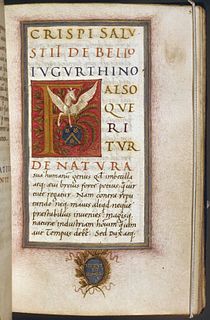 CRISPI SALV
STII DE BELLO
IVGVRTHINO
F
ALSO
QVE
RI TVR
DE NATVRA
sua humanum genus ꝙ imbecilla
atq; aui breuis forte potius quam
reputando
neq; maius aliud neque
præstabilius inuenias magisq;
naturæ industriam hominum quam
aut Tempus deesse. Sed Dux atq;